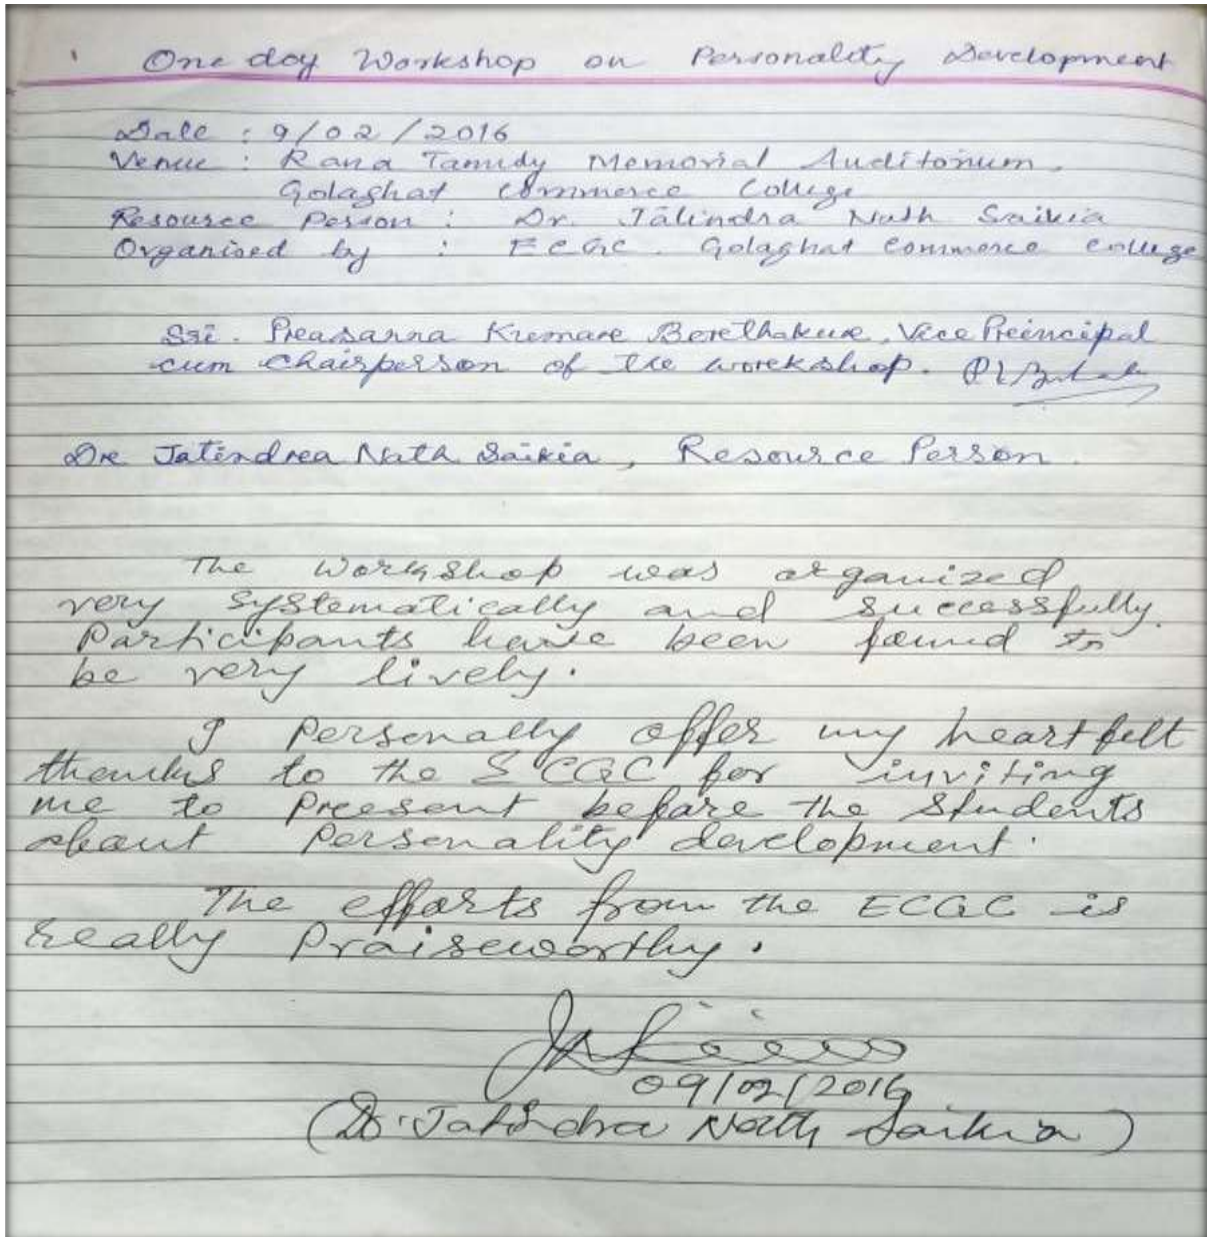 One day Workshop on Personality Development
Date : 9/02/2016
Venue : Rana Tamuly Memorial Auditorium,
Golaghat Commerce College
Resource Person : Dr. Jatindra Nath Saikia
Organised by : ECGC. Golaghat Commerce College
Sri. Preasanna Kumare Borethakure, Vice Preincipal
cum Chairperson of the workshop.
Dre Jatindrea Nath Saikia, Resource Person.
The workshop was organized
very systematically and successfully.
Participants have been found to
be very lively.
I personally offer my heartfelt
thanks to the ECGC for inviting
me to present before the students
about personality development.
The efforts from the ECGC is
really praiseworthy.
09/02/2016
(Dr. Jatindra Nath Saikia)